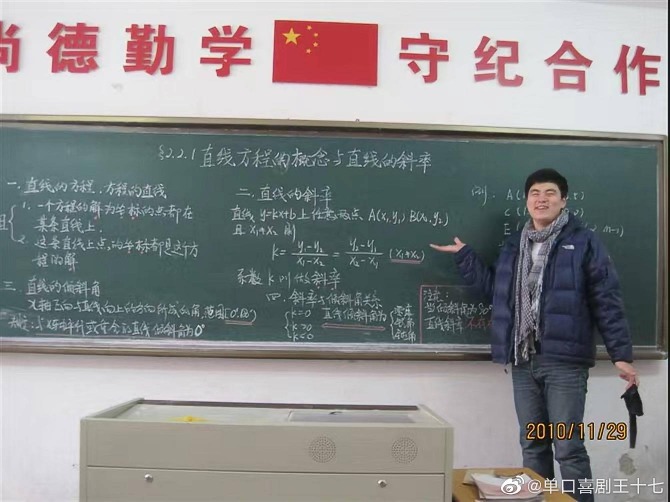 尚德勤学
守纪合作
§2.2.1 直线方程的概念与直线的斜率
一. 直线的方程,方程的直线
1. 一个方程的解为坐标的点都在
某条直线上.
且
2. 这条直线上点的坐标都是这个方
程的解
二. 直线的斜率
直线 y=kx+b上任意两点, A(x₁,y₁) B(x₂,y₂)
且 x₁≠x₂ 则
k= y₁-y₂ / x₁-x₂ = y₂-y₁ / x₂-x₁ (x₁≠x₂)
系数 k 叫做斜率
三. 直线的倾斜角
x轴正向与直线向上的方向所成的角, 范围[0°,180°)
规定: 与x轴平行或重合的直线倾斜角为0°
四. 斜率与倾斜角关系
k=0 直线倾斜角为 零角
k>0 锐角
k<0 钝角
注意:
当倾斜角为90°
直线斜率
例: A(
C(
E(
2010/11/29
@单口喜剧王十七